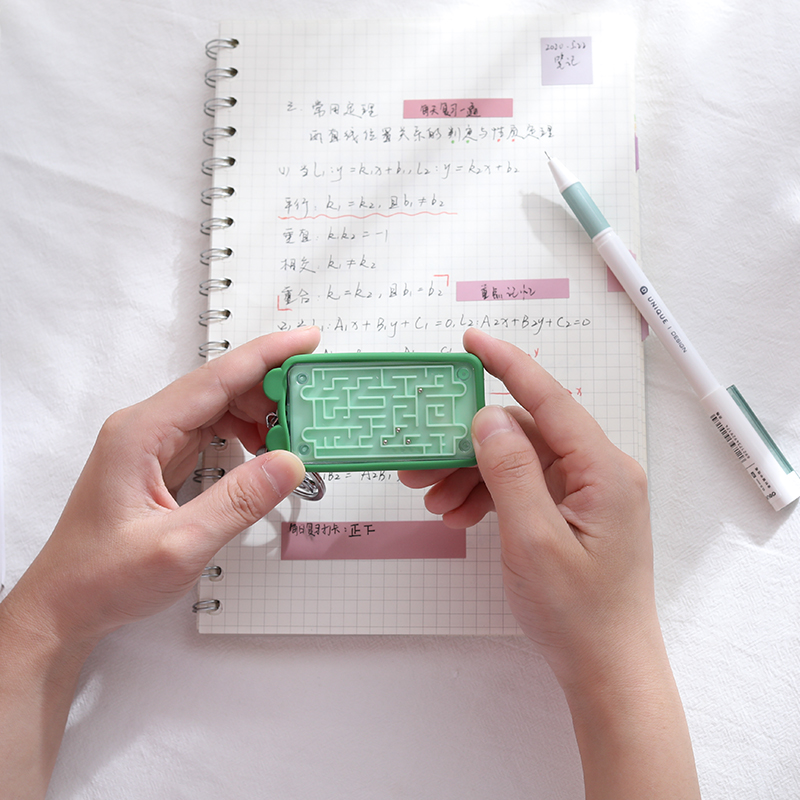 2020.5.22
笔记
三. 常用定理 每天复习一遍
两直线位置关系的判定与性质定理
(1) 当L₁:y=k₁x+b₁, L₂:y=k₂x+b₂
平行: k₁=k₂, 且b₁≠b₂
垂直: k₁k₂=-1
相交: k₁≠k₂
重合: k₁=k₂, 且b₁=b₂ 重点记忆
L₁:A₁x+B₁y+C₁=0, L₂:A₂x+B₂y+C₂=0
每日复习打卡: 正下
UNIQUE DESIGN